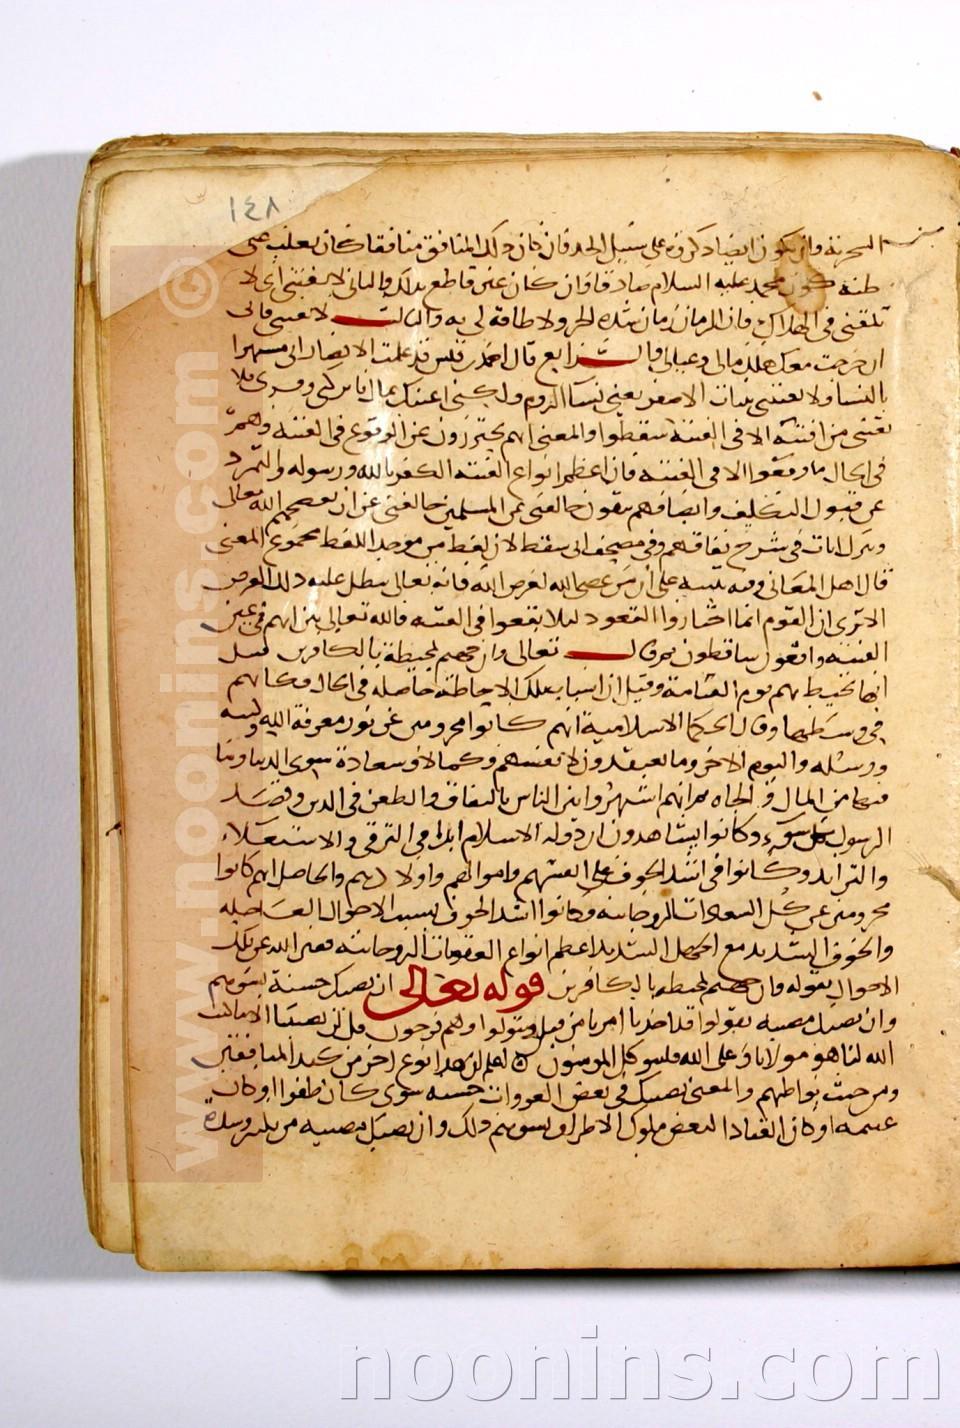 ١٤٨
السخرية وان يكون ايضا ذكروه على سبيل الجد فان كان ذلك المنافق منافقا كان يغلب على
ظنه كون محمد عليه السلام صادقا وان كان غير قاطع بذلك والثاني لا تفتني اى لا
تلقني في الهلاك فان الزمان زمان شدة الحر ولا طاقة لي به والثالث لا تفتني فاني
ان خرجت معك هلك مالى وعيالى والرابع قال الجد بن قيس قد علمت الانصار انى مستهتر
بالنسا ولا تفتني ببنات الاصفر يعني نسا الروم ولكني اعينك بمال فاتركني وقرى ولا
تفتني من افتنه الا في الفتنة سقطوا والمعنى انهم يحترزون عن الوقوع في الفتنة وهم
في الحال ما وقعوا الا في الفتنة فان اعظم انواع الفتنة الكفر بالله ورسوله والتمرد
عن قبول التكليف وايضا فهم يبقون خالفين عن المسلمين خائفين عن ان يفضحهم الله تعالى
وينزل ايات في شرح نفاقهم وفي مصحف ابى سقط لان لفظ من موحد اللفظ مجموع المعنى
قال اهل المعاني وفيه تنبيه على ان من عصى الله لغرض الله فانه تعالى يبطل عليه ذلك الغرض
الا ترى ان القوم انما اختاروا القعود ليلا يقعوا في الفتنة فالله تعالى بين انهم في عين
الفتنة واقعون ساقطون ثم قال تعالى وان جهنم لمحيطة بالكافرين قيل
انها تحيط بهم يوم القيامة وقيل ان اسباب تلك الاحاطة حاصلة في الحال فكانهم
في وسطها وقال الحكما الاسلامية انهم كانوا محرومين عن نور معرفة الله وكتبه
ورسله واليوم الاخر وما يعتقدون لانفسهم وكمالا وسعادة سوى الدنيا وما
فيها من المال والجاه ثم انهم اشتهروا بين الناس بالنفاق والطعن في الدين وقصد
الرسول بكل سوء وكانوا يشاهدون ان دولة الاسلام ابدا في الترقي والاستعلاء
والتزايد وكانوا في اشد الخوف على انفسهم واموالهم واولادهم والحاصل انهم كانوا
محرومين عن كل السعادات الروحانية وكانوا في اشد الخوف بسبب الاحوال العاجلة
والخوف الشديد مع الجهل الشديد اعظم انواع العقوبات الروحانية فعبر الله عن تلك
الاحوال بقوله وان جهنم لمحيطة بالكافرين قوله تعالى ان تصبك حسنة تسوهم
وان تصبك مصيبة يقولوا قد اخذنا امرنا من قبل ويتولوا وهم فرحون قل لن يصيبنا الا ما كتب
الله لنا هو مولانا وعلى الله فليتوكل المومنون اعلم ان هذا نوع اخر من كيد المنافقين
ومن خبث بواطنهم والمعنى ان تصبك في بعض الغزوات حسنة سوى كان ظفرا او كان
غنيمة او كان انقيادا لبعض ملوك الاطراف يسوهم ذلك وان تصبك مصيبة من نكبة وشدة
www.noonins.com ©
noonins.com